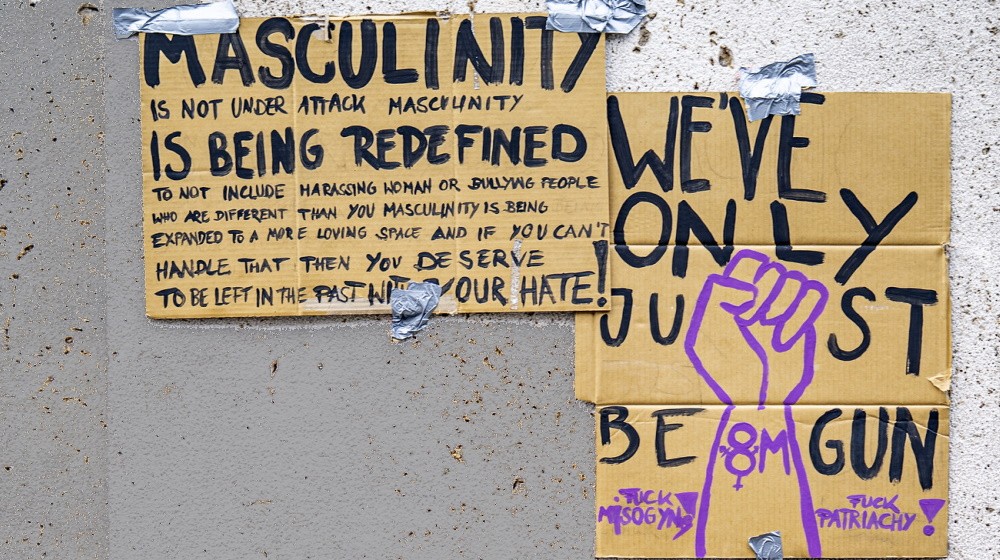 MASCULINITY
IS NOT UNDER ATTACK MASCULINITY
IS BEING REDEFINED
TO NOT INCLUDE HARASSING WOMAN OR BULLYING PEOPLE
WHO ARE DIFFERENT THAN YOU MASCULINITY IS BEING
EXPANDED TO A MORE LOVING SPACE AND IF YOU CAN'T
HANDLE THAT THEN YOU DESERVE
TO BE LEFT IN THE PAST WITH YOUR HATE!
WE'VE
ONLY
JUST
BEGUN
8M
FUCK
MISOGYNY!
FUCK
PATRIACHY!